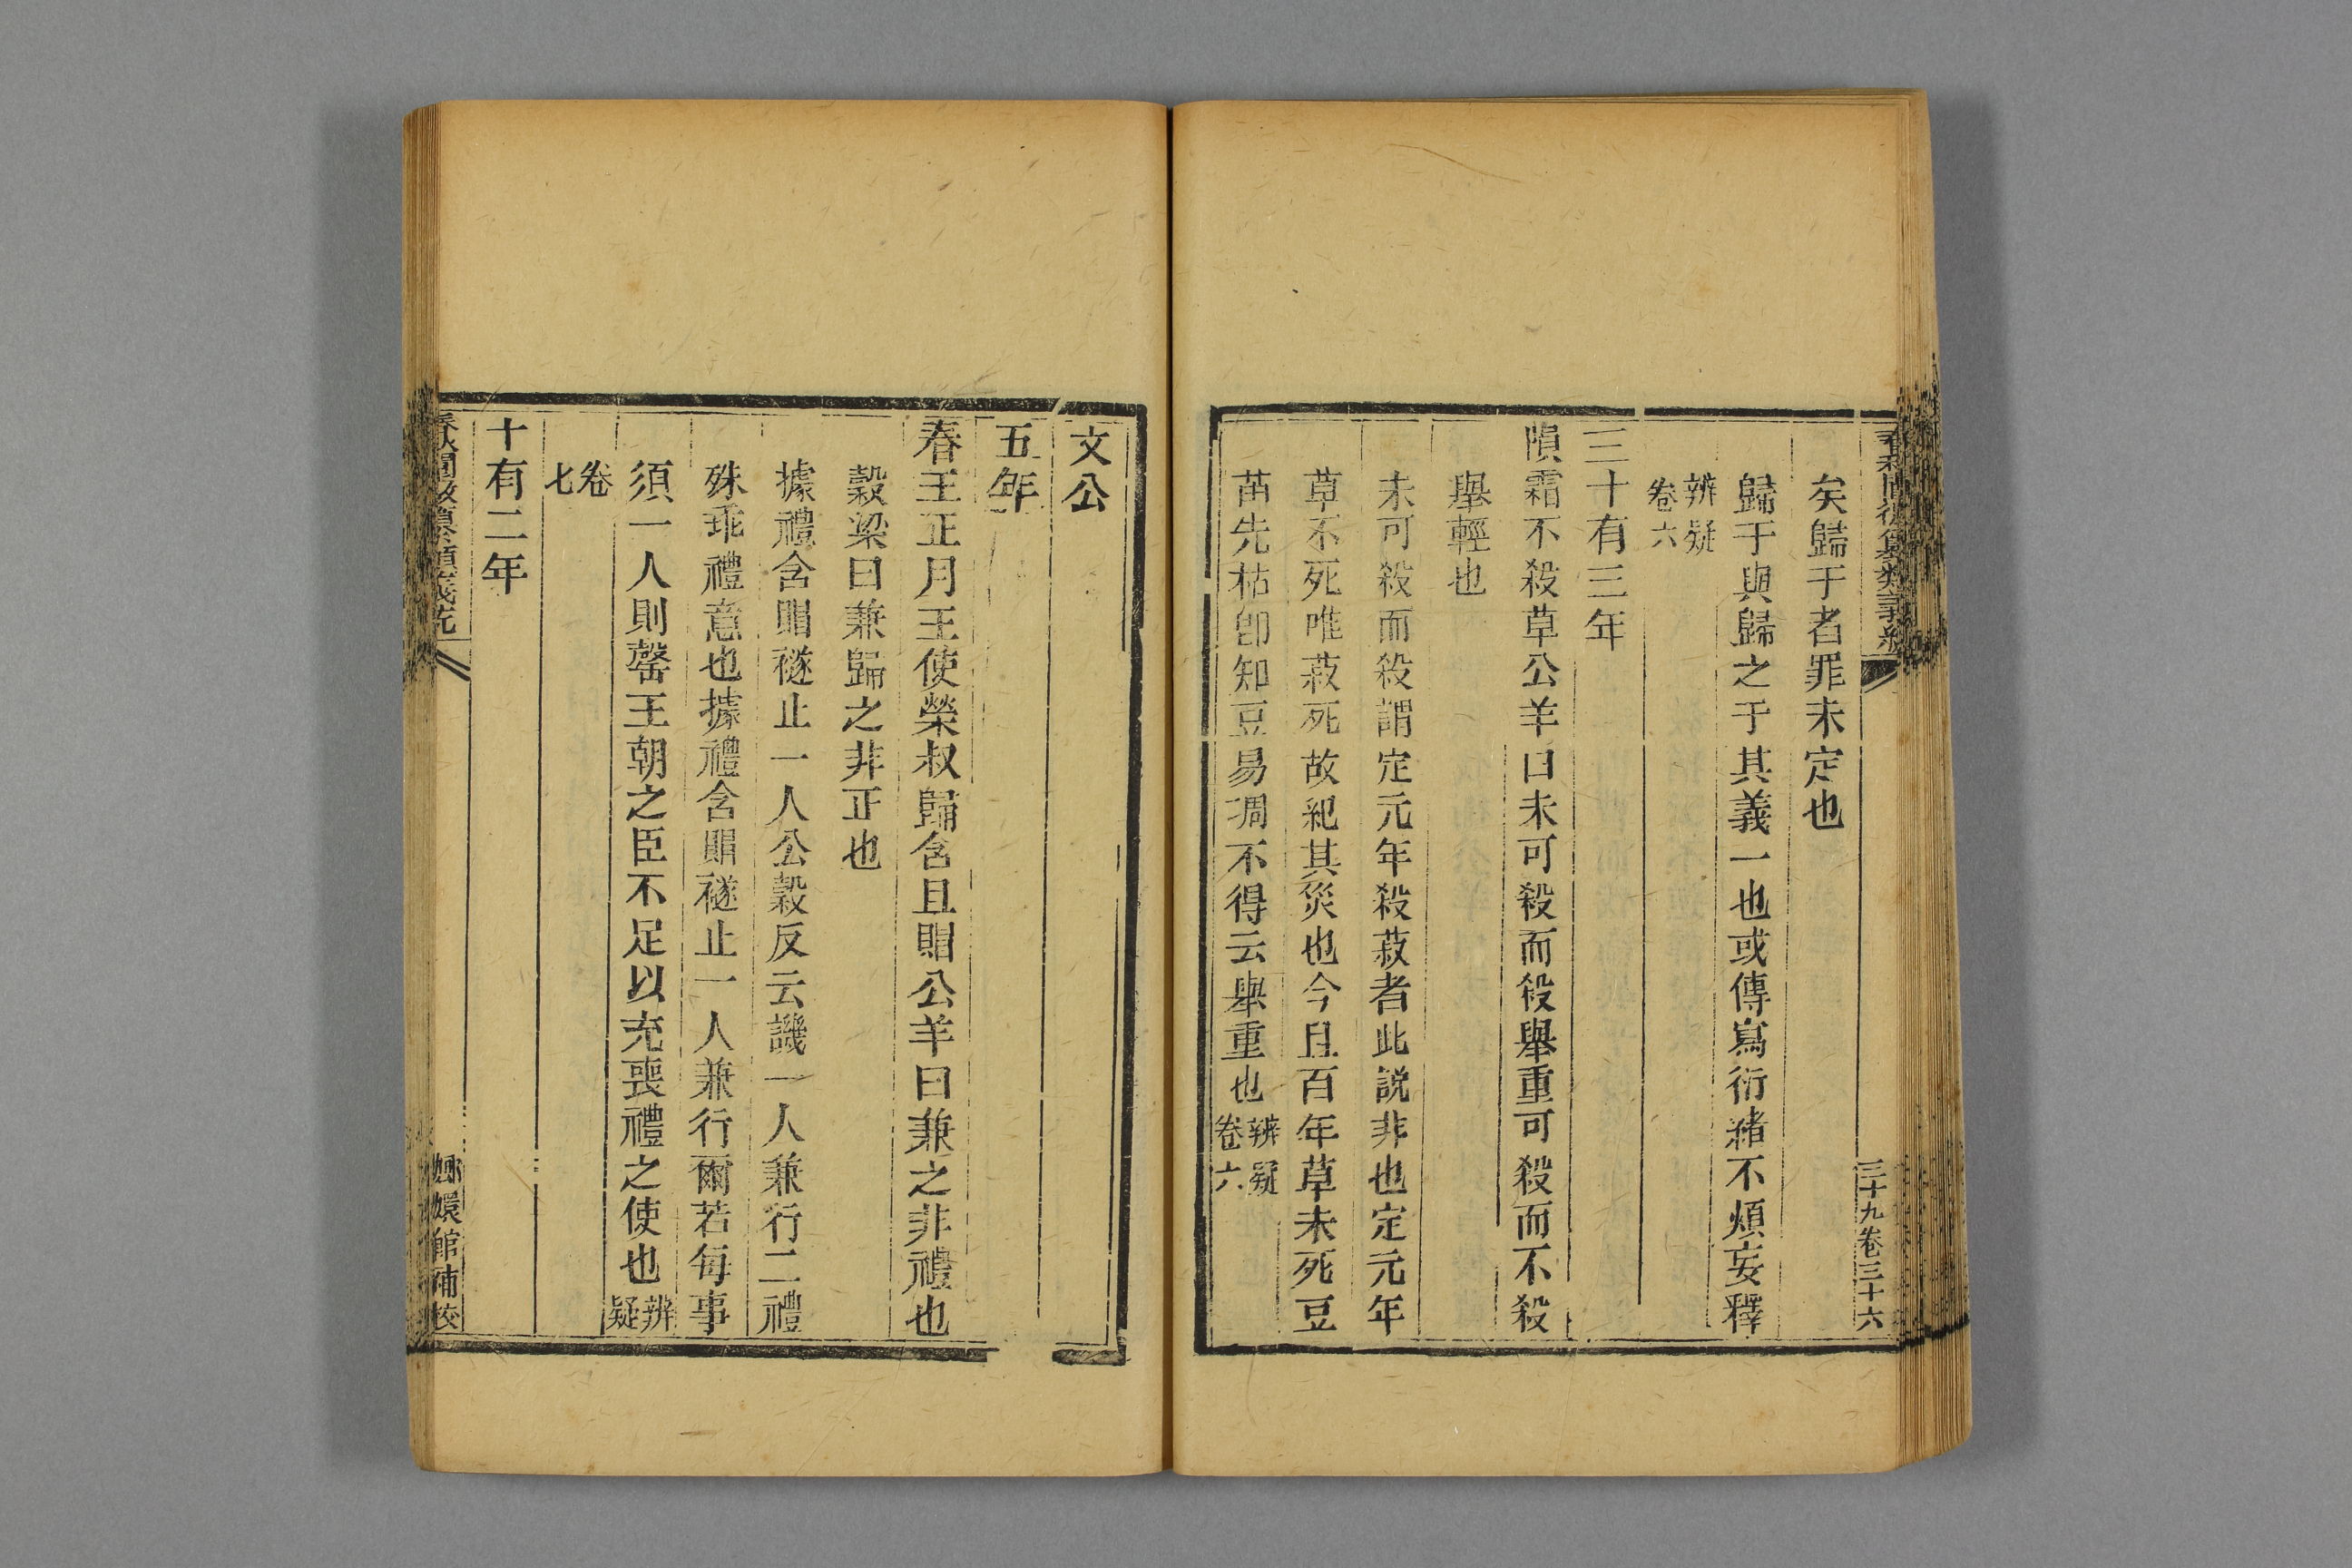 矣歸于者罪未定也
歸于與歸之于其義一也或傳寫衍豬不煩妄釋
辨疑
卷六
三十有三年
隕霜不殺草公羊曰未可殺而殺舉重可殺而不殺
舉輕也
未可殺而殺謂定元年殺菽者此説非也定元年
草不死唯菽死故紀其災也今且百年草未死豆
苗先枯卽知豆易凋不得云舉重也辨疑
卷六
三十九卷三十六
文公
五年
春王正月王使榮叔歸含且賵公羊曰兼之非禮也
穀梁曰兼歸之非正也
據禮含賵襚止一人公穀反云譏一人兼行二禮
殊乖禮意也據禮含賵襚止一人兼行爾若每事
須一人則罄王朝之臣不足以充喪禮之使也辨
疑
卷
七
十有二年
嫏嬛館補校